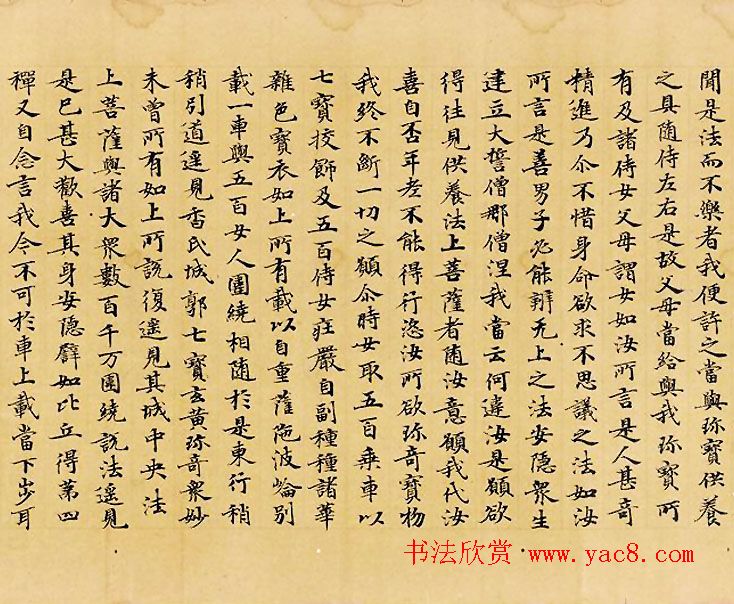 聞是法而不樂者我便許之當與珎寶供養
之具随侍左右是故父母當給與我珎寶所
有及諸侍女父母謂女如汝所言是人甚奇
精進乃尒不惜身命欲求不思議之法如汝
所言是善男子必能辦无上之法安隱衆生
建立大誓僧那僧涅我當云何違汝是願欲
得往見供養法上菩薩者随汝意願我代汝
喜自吾年老不能得行恣汝所欲珎奇寶物
我終不斷一切之願尒時女取五百乘車以
七寶挍飾及五百侍女莊嚴自副種種諸華
雜色寶衣如上所有載以自重薩陁波崘別
載一車與五百女人圍繞相随於是東行稍
稍引道遥見香氏城郭七寶玄黃珎奇衆妙
未曾所有如上所說復遥見其城中央法
上菩薩與諸大衆數百千万圍繞說法遥見
是巳甚大歡喜其身安隱譬如比丘得第四
禪又自念言我今不可於車上載當下步耳
书法欣赏:www.yac8.com